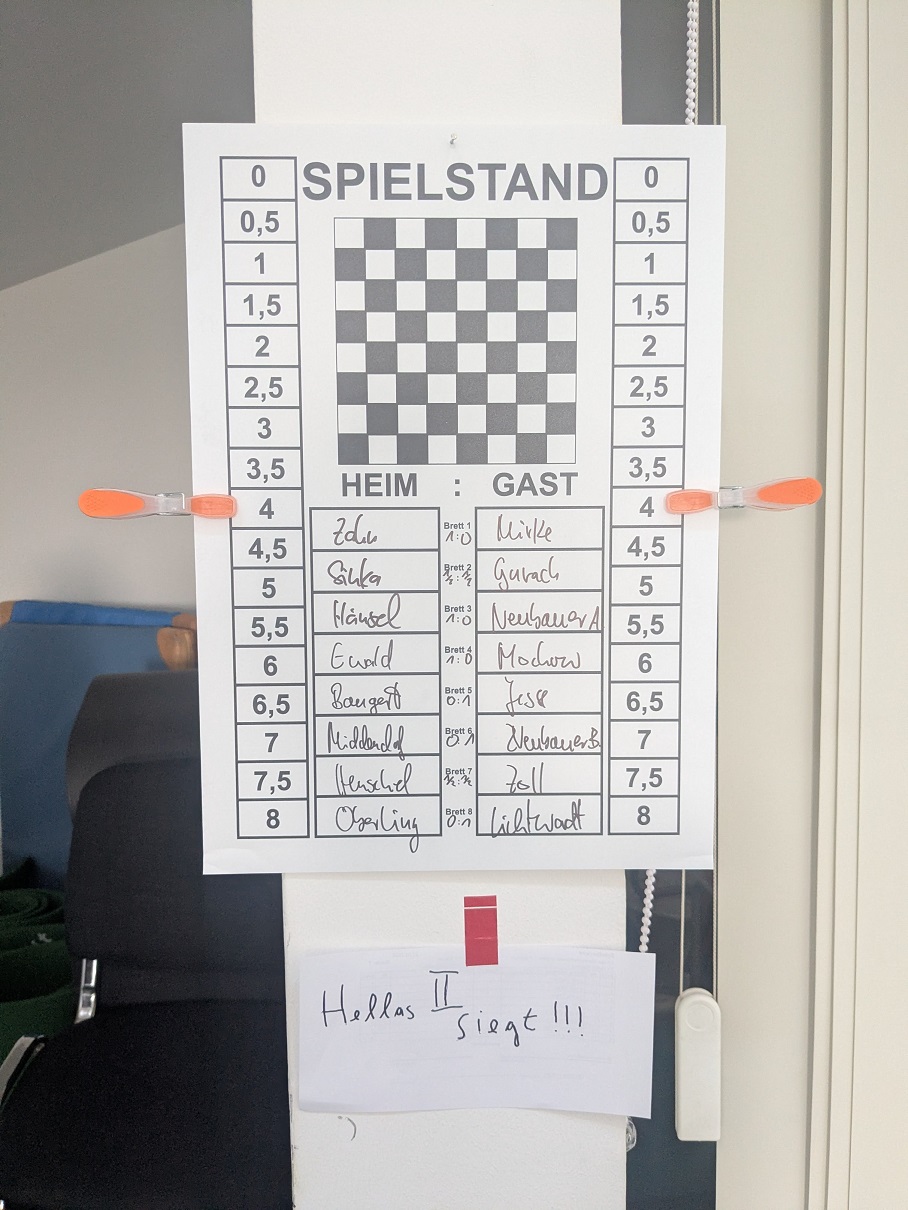 SPIELSTAND
0 0
0,5 0,5
1 1
1,5 1,5
2 2
2,5 2,5
3 3
3,5 3,5
HEIM : GAST
4 4
4,5 4,5
5 5
5,5 5,5
6 6
6,5 6,5
7 7
7,5 7,5
8 8
Zahn Brett 1 1:0 Mirke
Brett 2 ½:½ Gurach
Hänsel Brett 3 1:0 Neubauer A
Ewald Brett 4 1:0 Mochow
Bangert Brett 5 0:1 Jess
Middendorf Brett 6 0:1 Neubauer B
Henschel Brett 7 ½:½ Zoll
Oberling Brett 8 0:1 Lichtwadt
Hellas II
siegt!!!